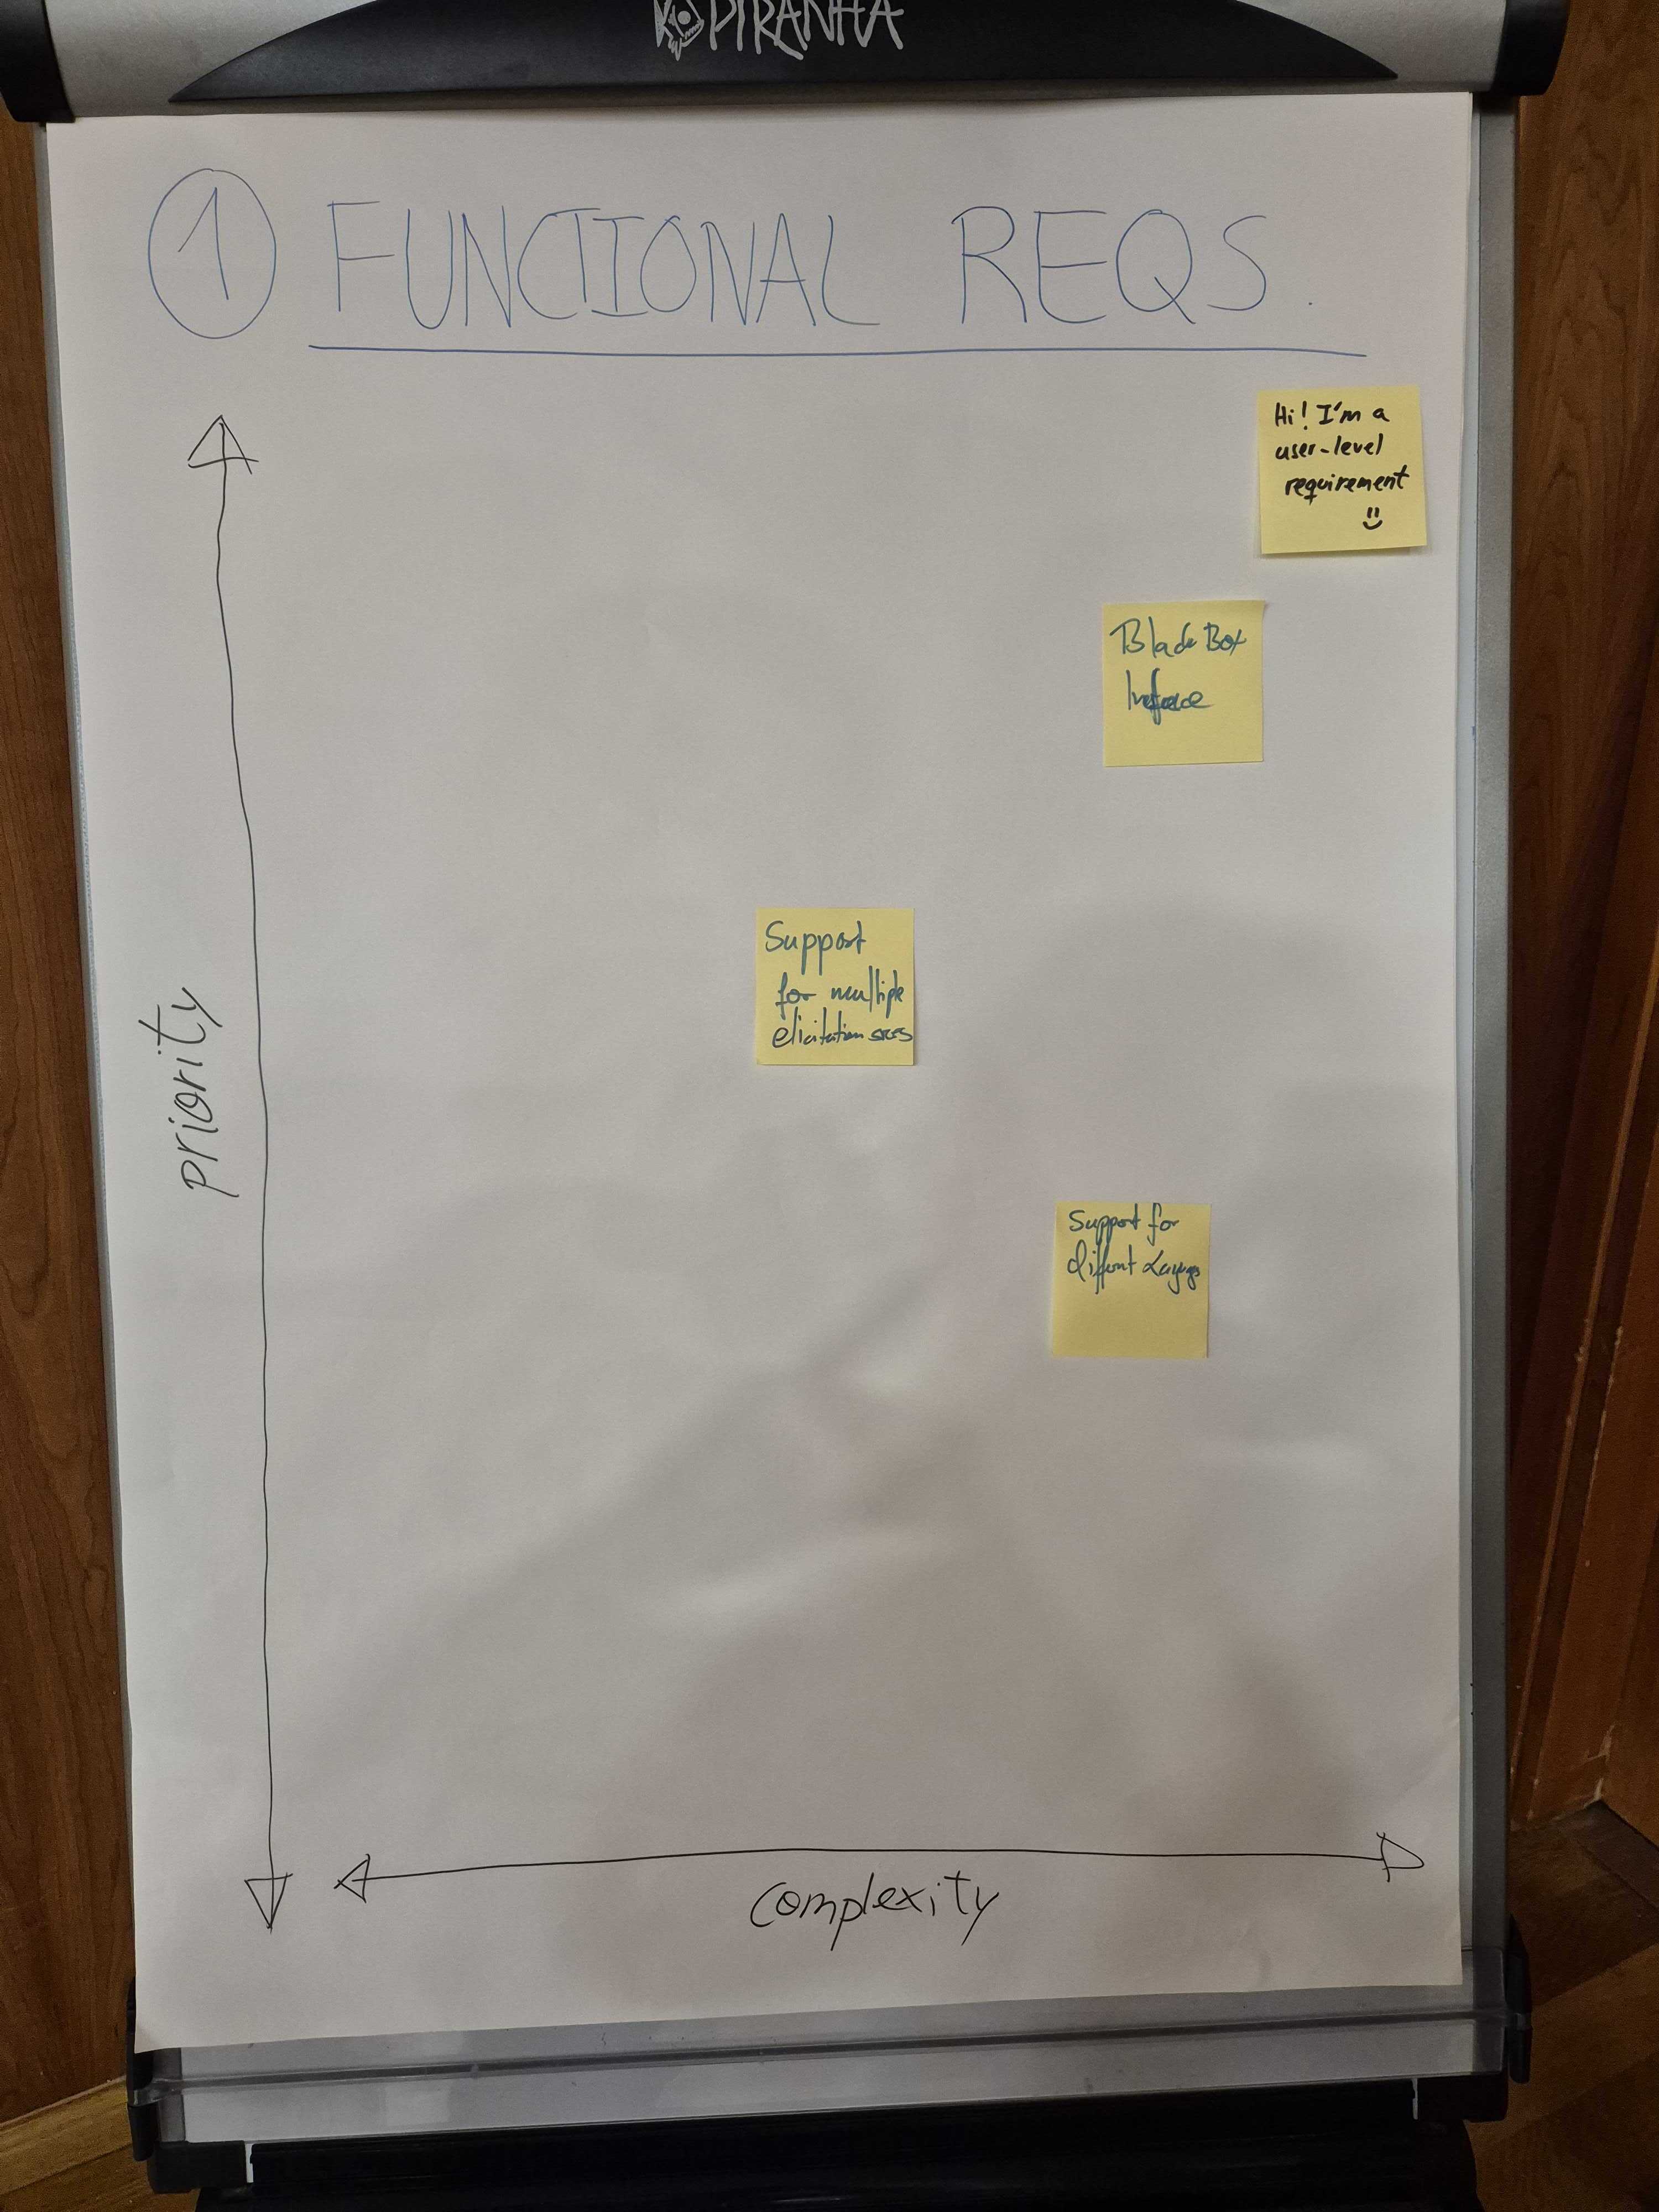 PIRANHA
1 FUNCTIONAL REQS.
Hi! I'm a
user-level
requirement
Black Box
Support
for multiple
elicitation srcs
Support for
priority
complexity